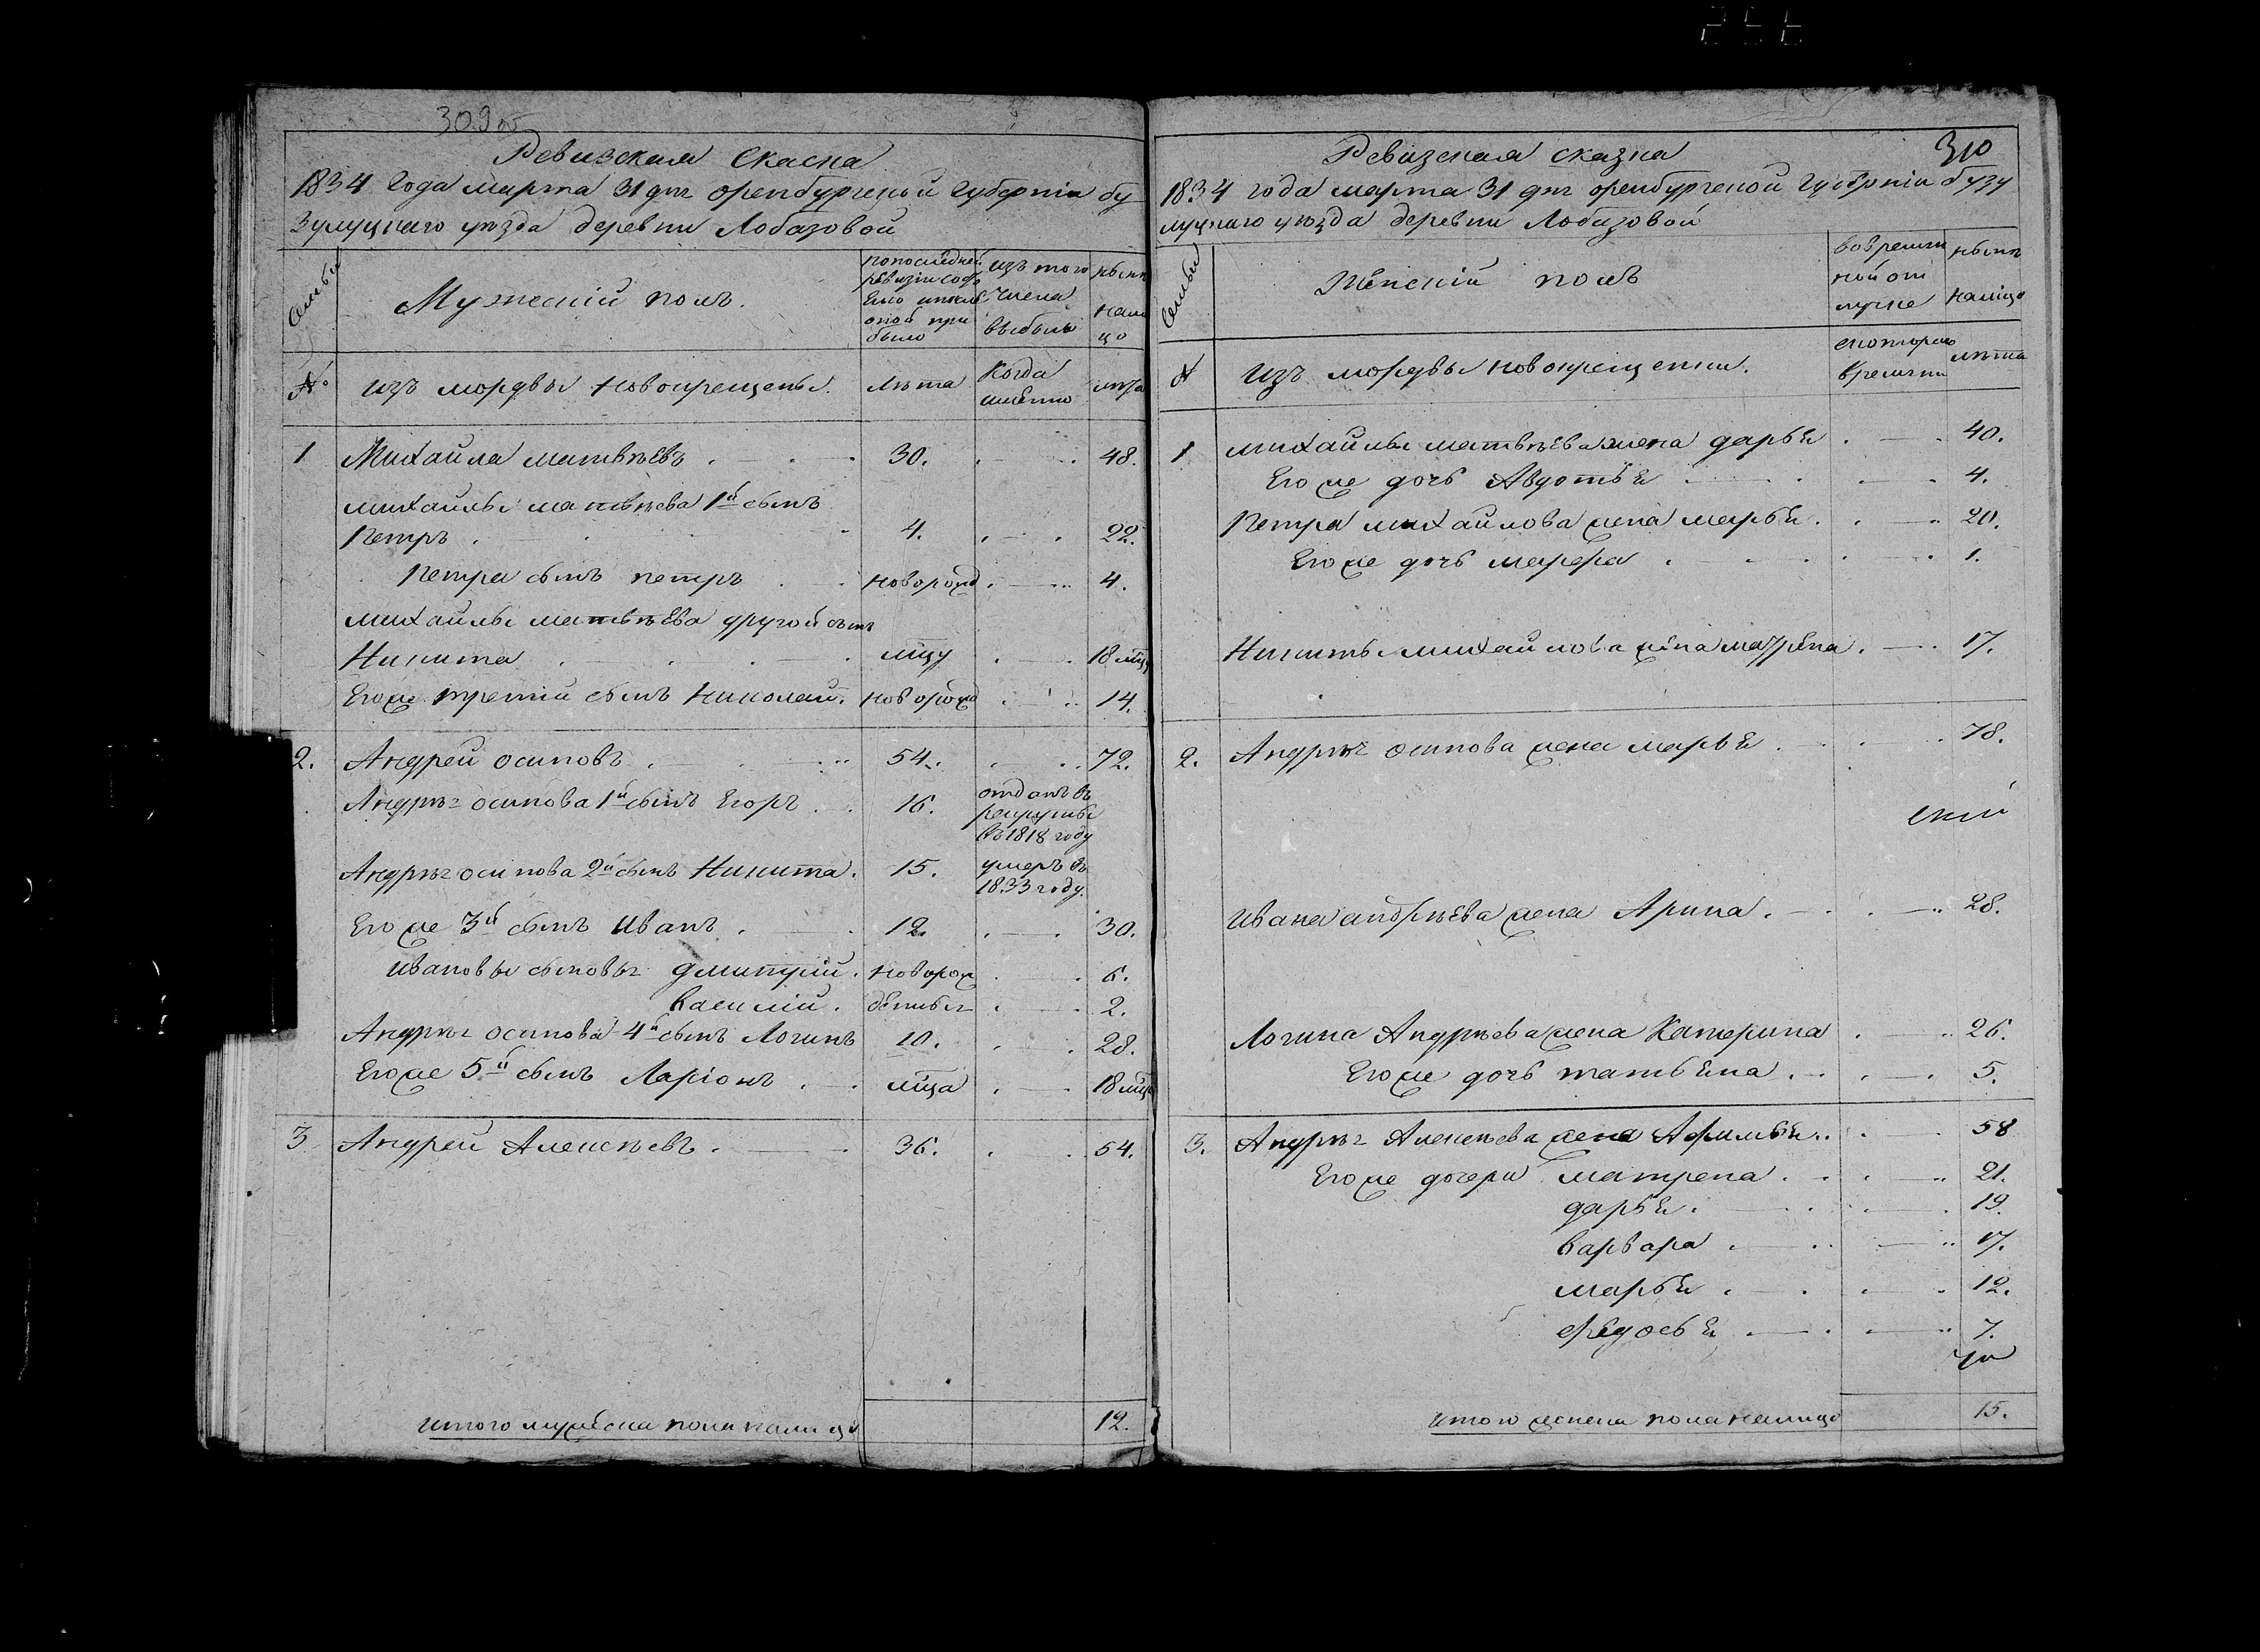 309 об
Ревизская Скаска
1834 года марта 31 дня оренбургской губернiи бу
зулуцкаго уѣзда деревни Лобазовой
Семьи
Мужескiй полъ.
попоследней
ревизiи состо
яло и после
оной при
было
изъ того
числа
выбыло
нынѣ
нали
цо
№
изъ мордвы новокрещены.
лѣта
Когда
имѣнно
лѣта
1 Михаила матвѣевъ 30. 48.
михайлы матвѣева 1й сынъ
Петръ 4. 22.
Петра сынъ петръ новорожд 4.
михайлы матвѣева другой сынъ
Никита мцу 18 мцу
Егоже третiй сынъ Николай. новорожд 14.
2. Андрей осиповъ 54. 72.
Андрѣя осипова 1й сынъ Егоръ 16. отданъ въ
рекруты
въ 1818 году
Андрѣя осипова 2й сынъ Никита. 15. умеръ въ
1833 году.
Егоже 3й сынъ иванъ 12. 30.
ивановы сыновья дмитрiй. новорож 6.
василiй. денныя 2.
Андрѣя осипова 4й сынъ Логинъ 10. 28.
Егоже 5й сынъ Ларiонъ мца 18 мца
3 Андрей Алексѣевъ 36. 54.
итого мужеска пола налицо 12.
310
Ревизская сказка
1834 года марта 31 дня оренбургской губернiи бузу
луцкаго уѣзда деревни Лобазовой
Семьи
Женскiй полъ
вовремян
ной от
лучке
нынѣ
налицо
№
изъ мордвы новокрещенки.
скотораго
времяни
лѣта
1 михайлы матвѣева жена дарья 40.
Егоже дочь Авдотья 4.
Петра михайлова жена марья. 20.
Егоже дочь марфа 1.
Никиты михайлова жена матрена. 17.
2. Андрѣя осипова жена марья 78.
скiй
ивана андрѣева жена Арина. 28.
Логина Андрѣева жена Катерина 26.
Егоже дочь татьяна. 5.
3. Андрѣя Алексѣева жена Афимья.. 58
Егоже дочери матрена. 21.
дарья. 19.
варвара 17.
марья 12.
федосья 7.
итого женска пола налицо 15.